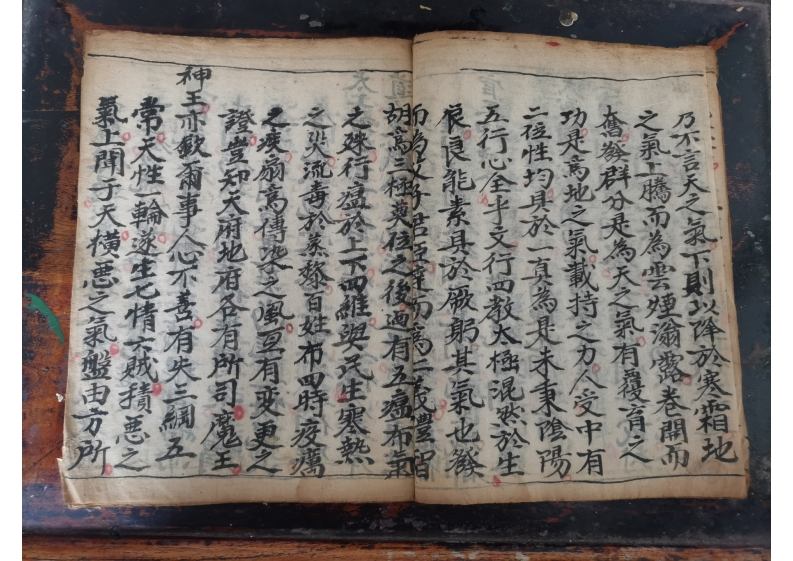 乃不言天之氣下則以降於寒霜地
之氣上騰而為雲煙滃露卷開而
奮發群分是為天之氣有覆育之
功是為地之氣載持之力人受中有
二位性均具於一真為是未秉陰陽
五行心全乎文行四教太極混然於生
良能素具於厥躬其氣也發
而為父子君臣達而為二義豊智
胡為三極奠位之後過有五瘟布氣
之殊行瘟於上下四維與民生寒熱
之災流毒於蒸黎百姓布四時疫癘
之疾扇為傳染之風亘有变更之
證豈知天府地府各有所司魔王
神王亦欽爾事人心不善有失三綱五
常天性一輪遂生七情六賊積惡之
氣上聞于天橫惡之氣盤由方所